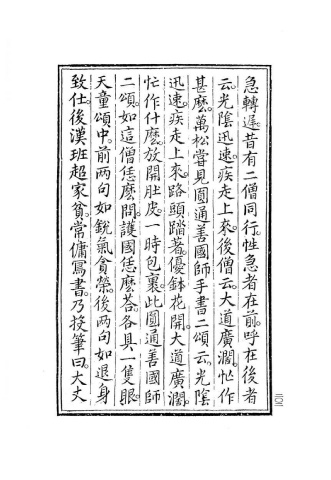 急轉遲。昔有二僧同行。性急者在前。呼在後者
云。光陰迅速。疾走上來。後僧云。大道廣濶。忙作
甚麽。萬松嘗見圓通善國師手書二頌云。光陰
迅速。疾走上來。路頭踏著。優鉢花開。大道廣濶。
忙作什麽。放開肚皮。一時包裹。此圓通善國師
二頌。如這僧恁麽問。護國恁麽荅。各具一隻眼。
天童頌中。前兩句如銳氣貪榮。後兩句如退身
致仕。後漢班超家貧。常傭寫書。乃投筆曰。大丈